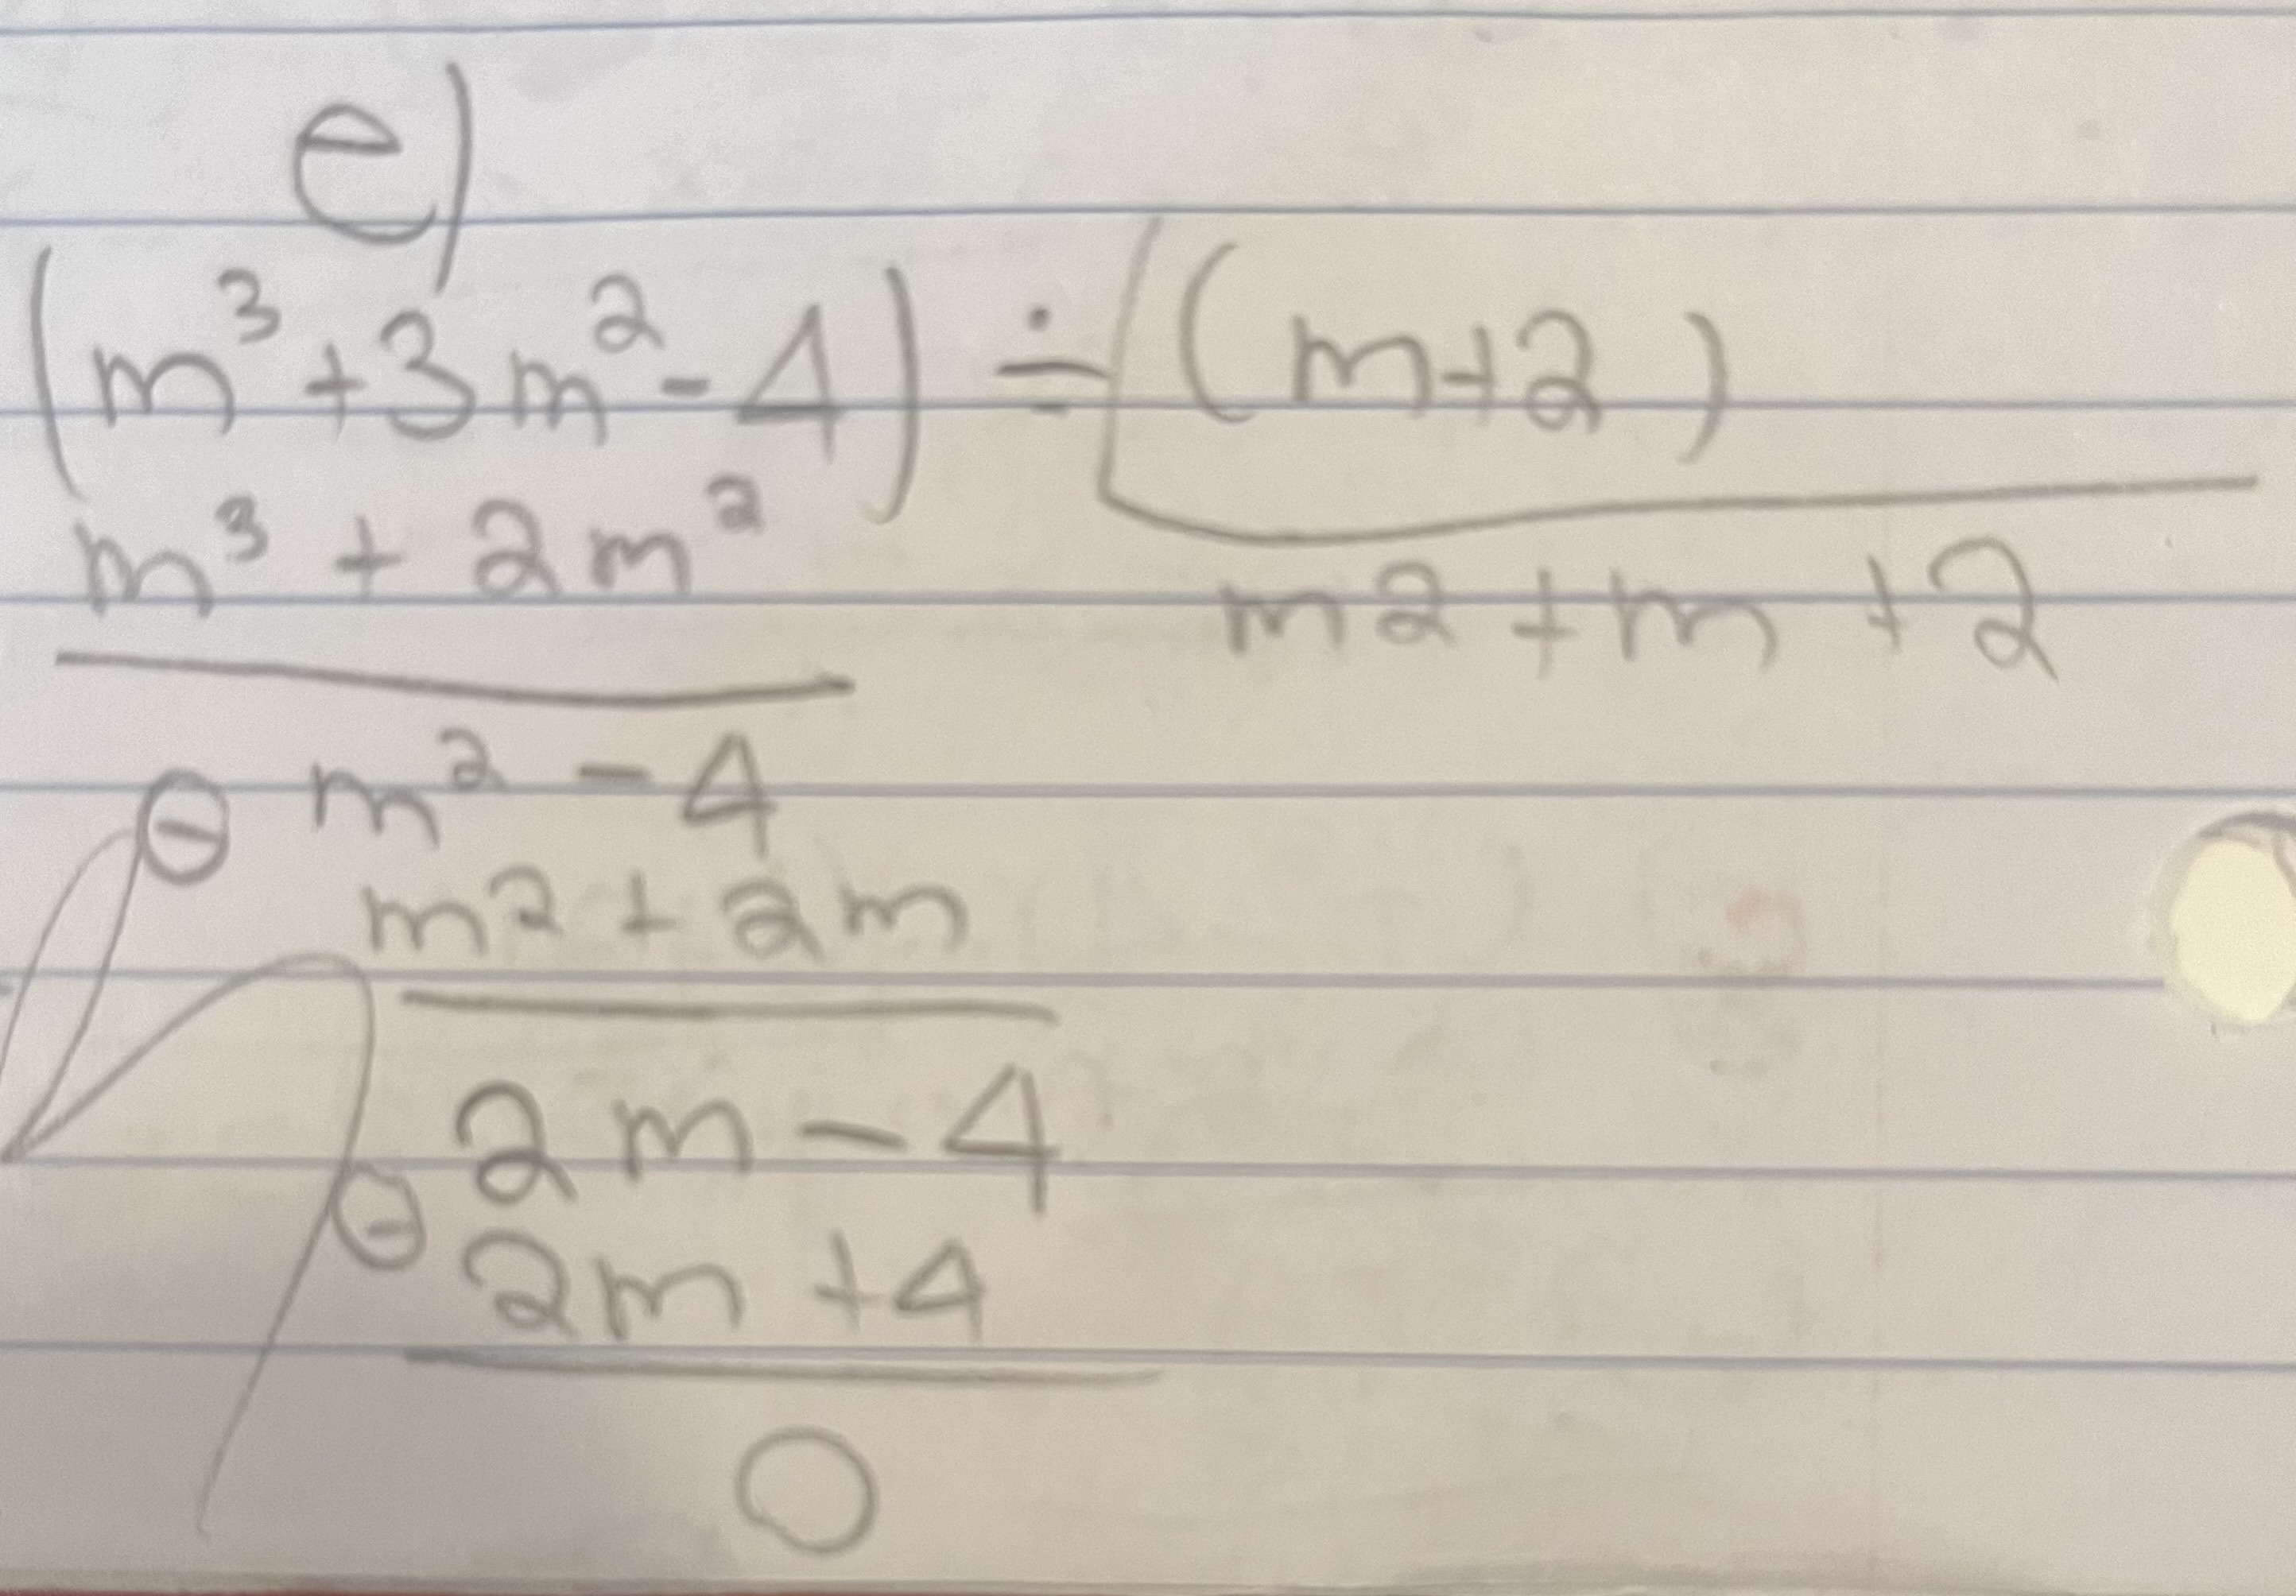 e)
(m³+3m²-4) ÷ (m+2)
m³ + 2m²
m2 + m + 2
⊖ m² - 4
m2 + 2m
2m - 4
⊖ 2m + 4
0